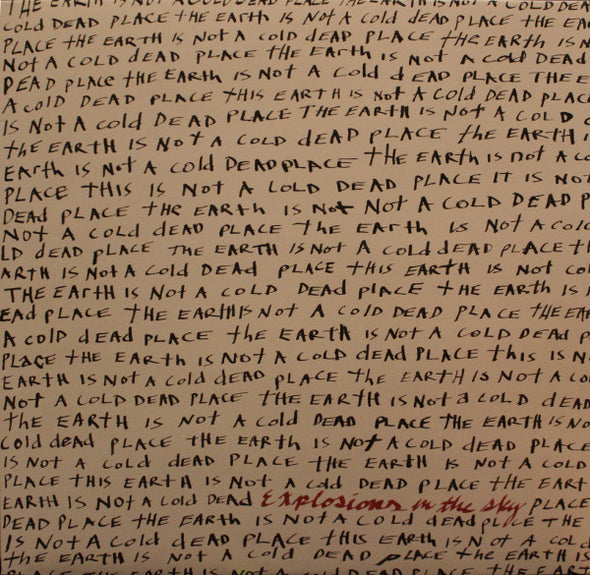 THE EARTH IS NOT A COLD DEAD PLACE THE EARTH IS NOT A COLD DEAD
COLD DEAD PLACE THE EARTH IS NOT A COLD DEAD PLACE THE EA
PLACE THE EARTH IS NOT A COLD DEAD PLACE THE EARTH IS N
NOT A COLD DEAD PLACE THE EARTH IS NOT A COLD DEAD
DEAD PLACE THE EARTH IS NOT A COLD DEAD PLACE THE E
A COLD DEAD PLACE THIS EARTH IS NOT A COLD DEAD PLAC
IS NOT A COLD DEAD PLACE THE EARTH IS NOT A COLD
THE EARTH IS NOT A COLD DEAD PLACE THE EARTH I
EARTH IS NOT A COLD DEAD PLACE THE EARTH IS NOT A CO
PLACE THIS IS NOT A COLD DEAD PLACE IT IS NOT
DEAD PLACE THE EARTH IS NOT NOT A COLD DEAD P
NOT A COLD DEAD PLACE THE EARTH IS NOT A COLD
LD DEAD PLACE THE EARTH IS NOT A COLD DEAD PLACE TH
ARTH IS NOT A COLD DEAD PLACE THIS EARTH IS NOT COL
THE EARTH IS NOT A COLD DEAD PLACE THE EARTH IS
EAD PLACE THE EARTH IS NOT A COLD DEAD PLACE THE EAR
A COLD DEAD PLACE THE EARTH IS NOT A COLD DEAD P
PLACE THE EARTH IS NOT A COLD DEAD PLACE THIS IS N
EARTH IS NOT A COLD DEAD PLACE THE EARTH IS NOT A CO
NOT A COLD DEAD PLACE THE EARTH IS NOT A COLD DEAD
THE EARTH IS NOT A COLD DEAD PLACE THE EARTH IS NO
COLD DEAD PLACE THE EARTH IS NOT A COLD DEAD PLACE
IS NOT A COLD DEAD PLACE THE EARTH IS NOT A COLD
PLACE THIS EARTH IS NOT A COLD DEAD PLACE THE EART
EARTH IS NOT A COLD DEAD Explosions in the sky PLACE
DEAD PLACE THE EARTH IS NOT A COLD DEAD PLACE THE
IS NOT A COLD DEAD PLACE THIS EARTH IS NOT A COLD
THE EARTH IS NOT A COLD DEAD PLACE THE EARTH IS
PLACE THE EARTH IS NOT A COLD DEAD PLACE THE EART